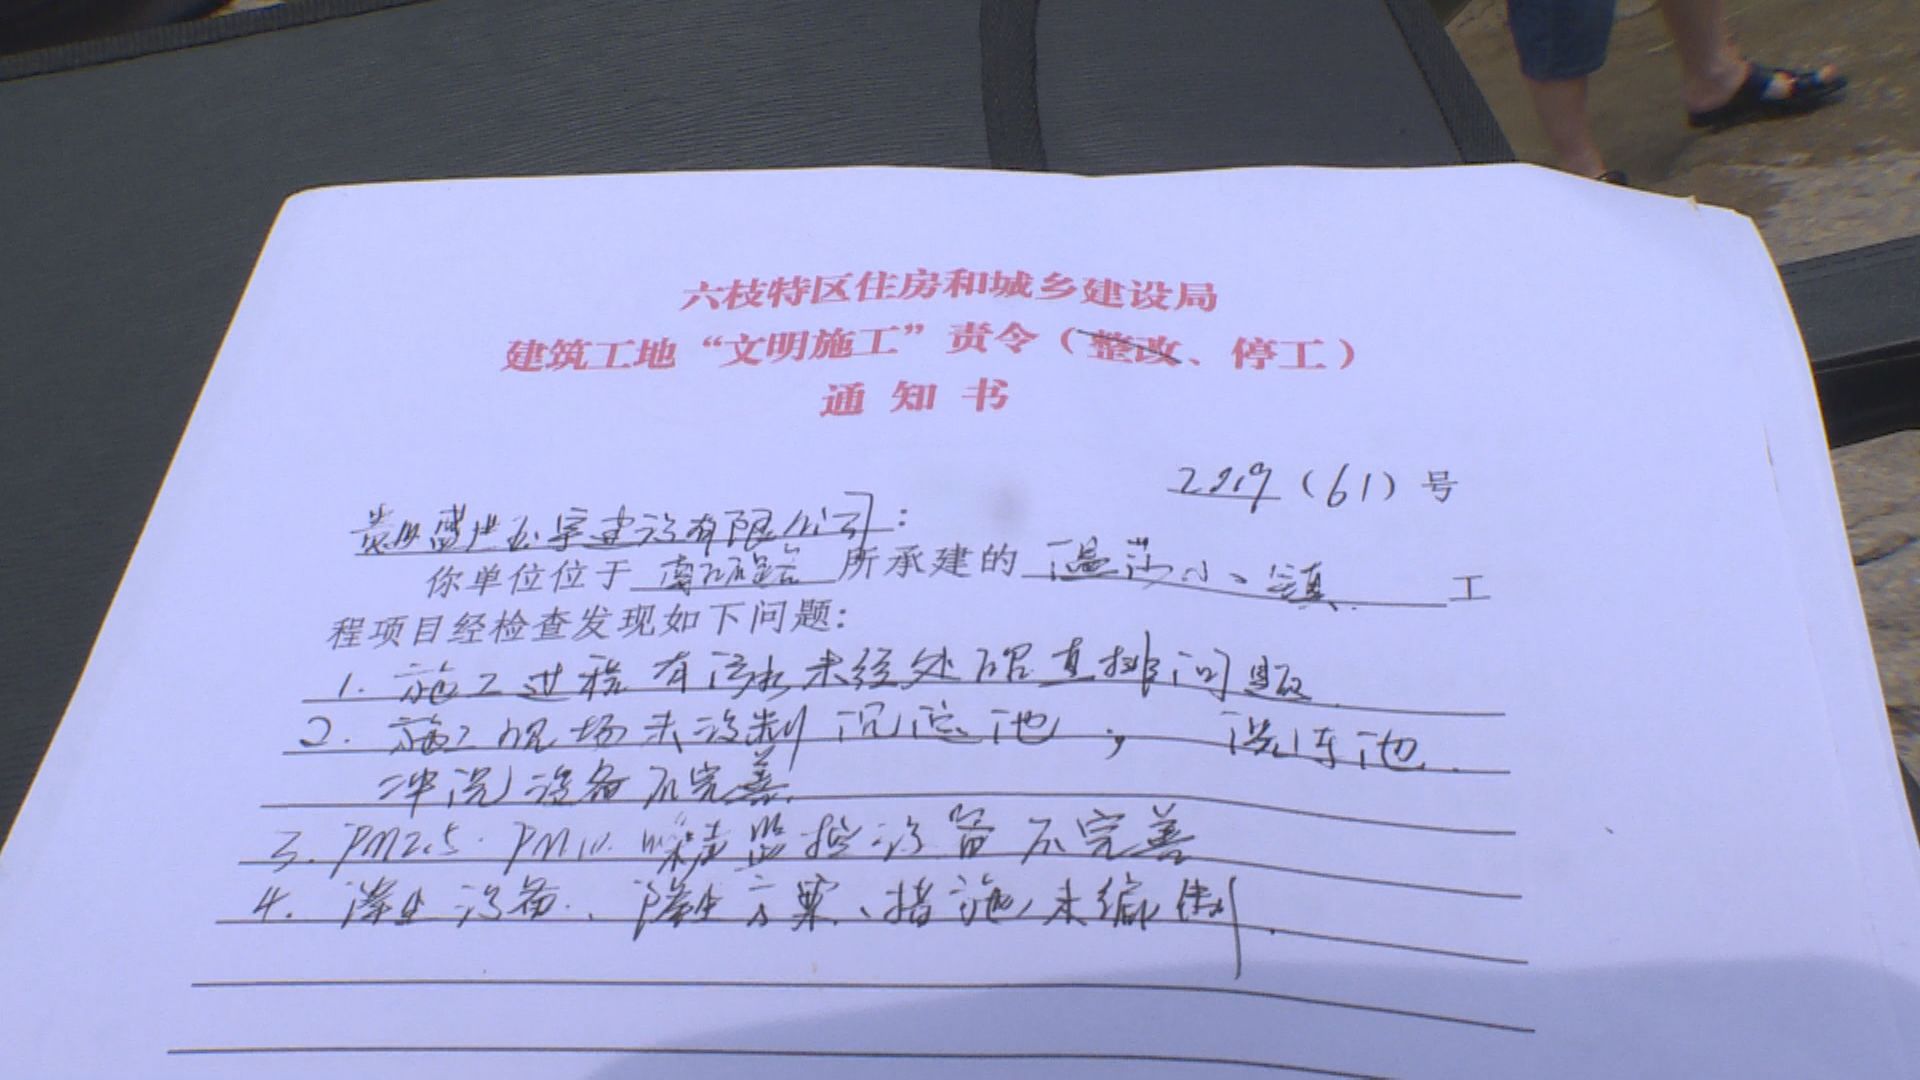 六枝特区住房和城乡建设局
建筑工地“文明施工”责令（整改、停工）
通知书
2019（61）号
贵州盛世玉宇建设有限公司：
你单位位于 南环路 所承建的 温莎小镇 工
程项目经检查发现如下问题：
1. 施工过程有污水未经处理直排问题
2. 施工现场未设制沉淀池， 洗车池
冲洗设备不完善.
3. PM2.5. PM10. 噪声监控设备不完善
4. 降尘设备、降尘方案、措施未编制.